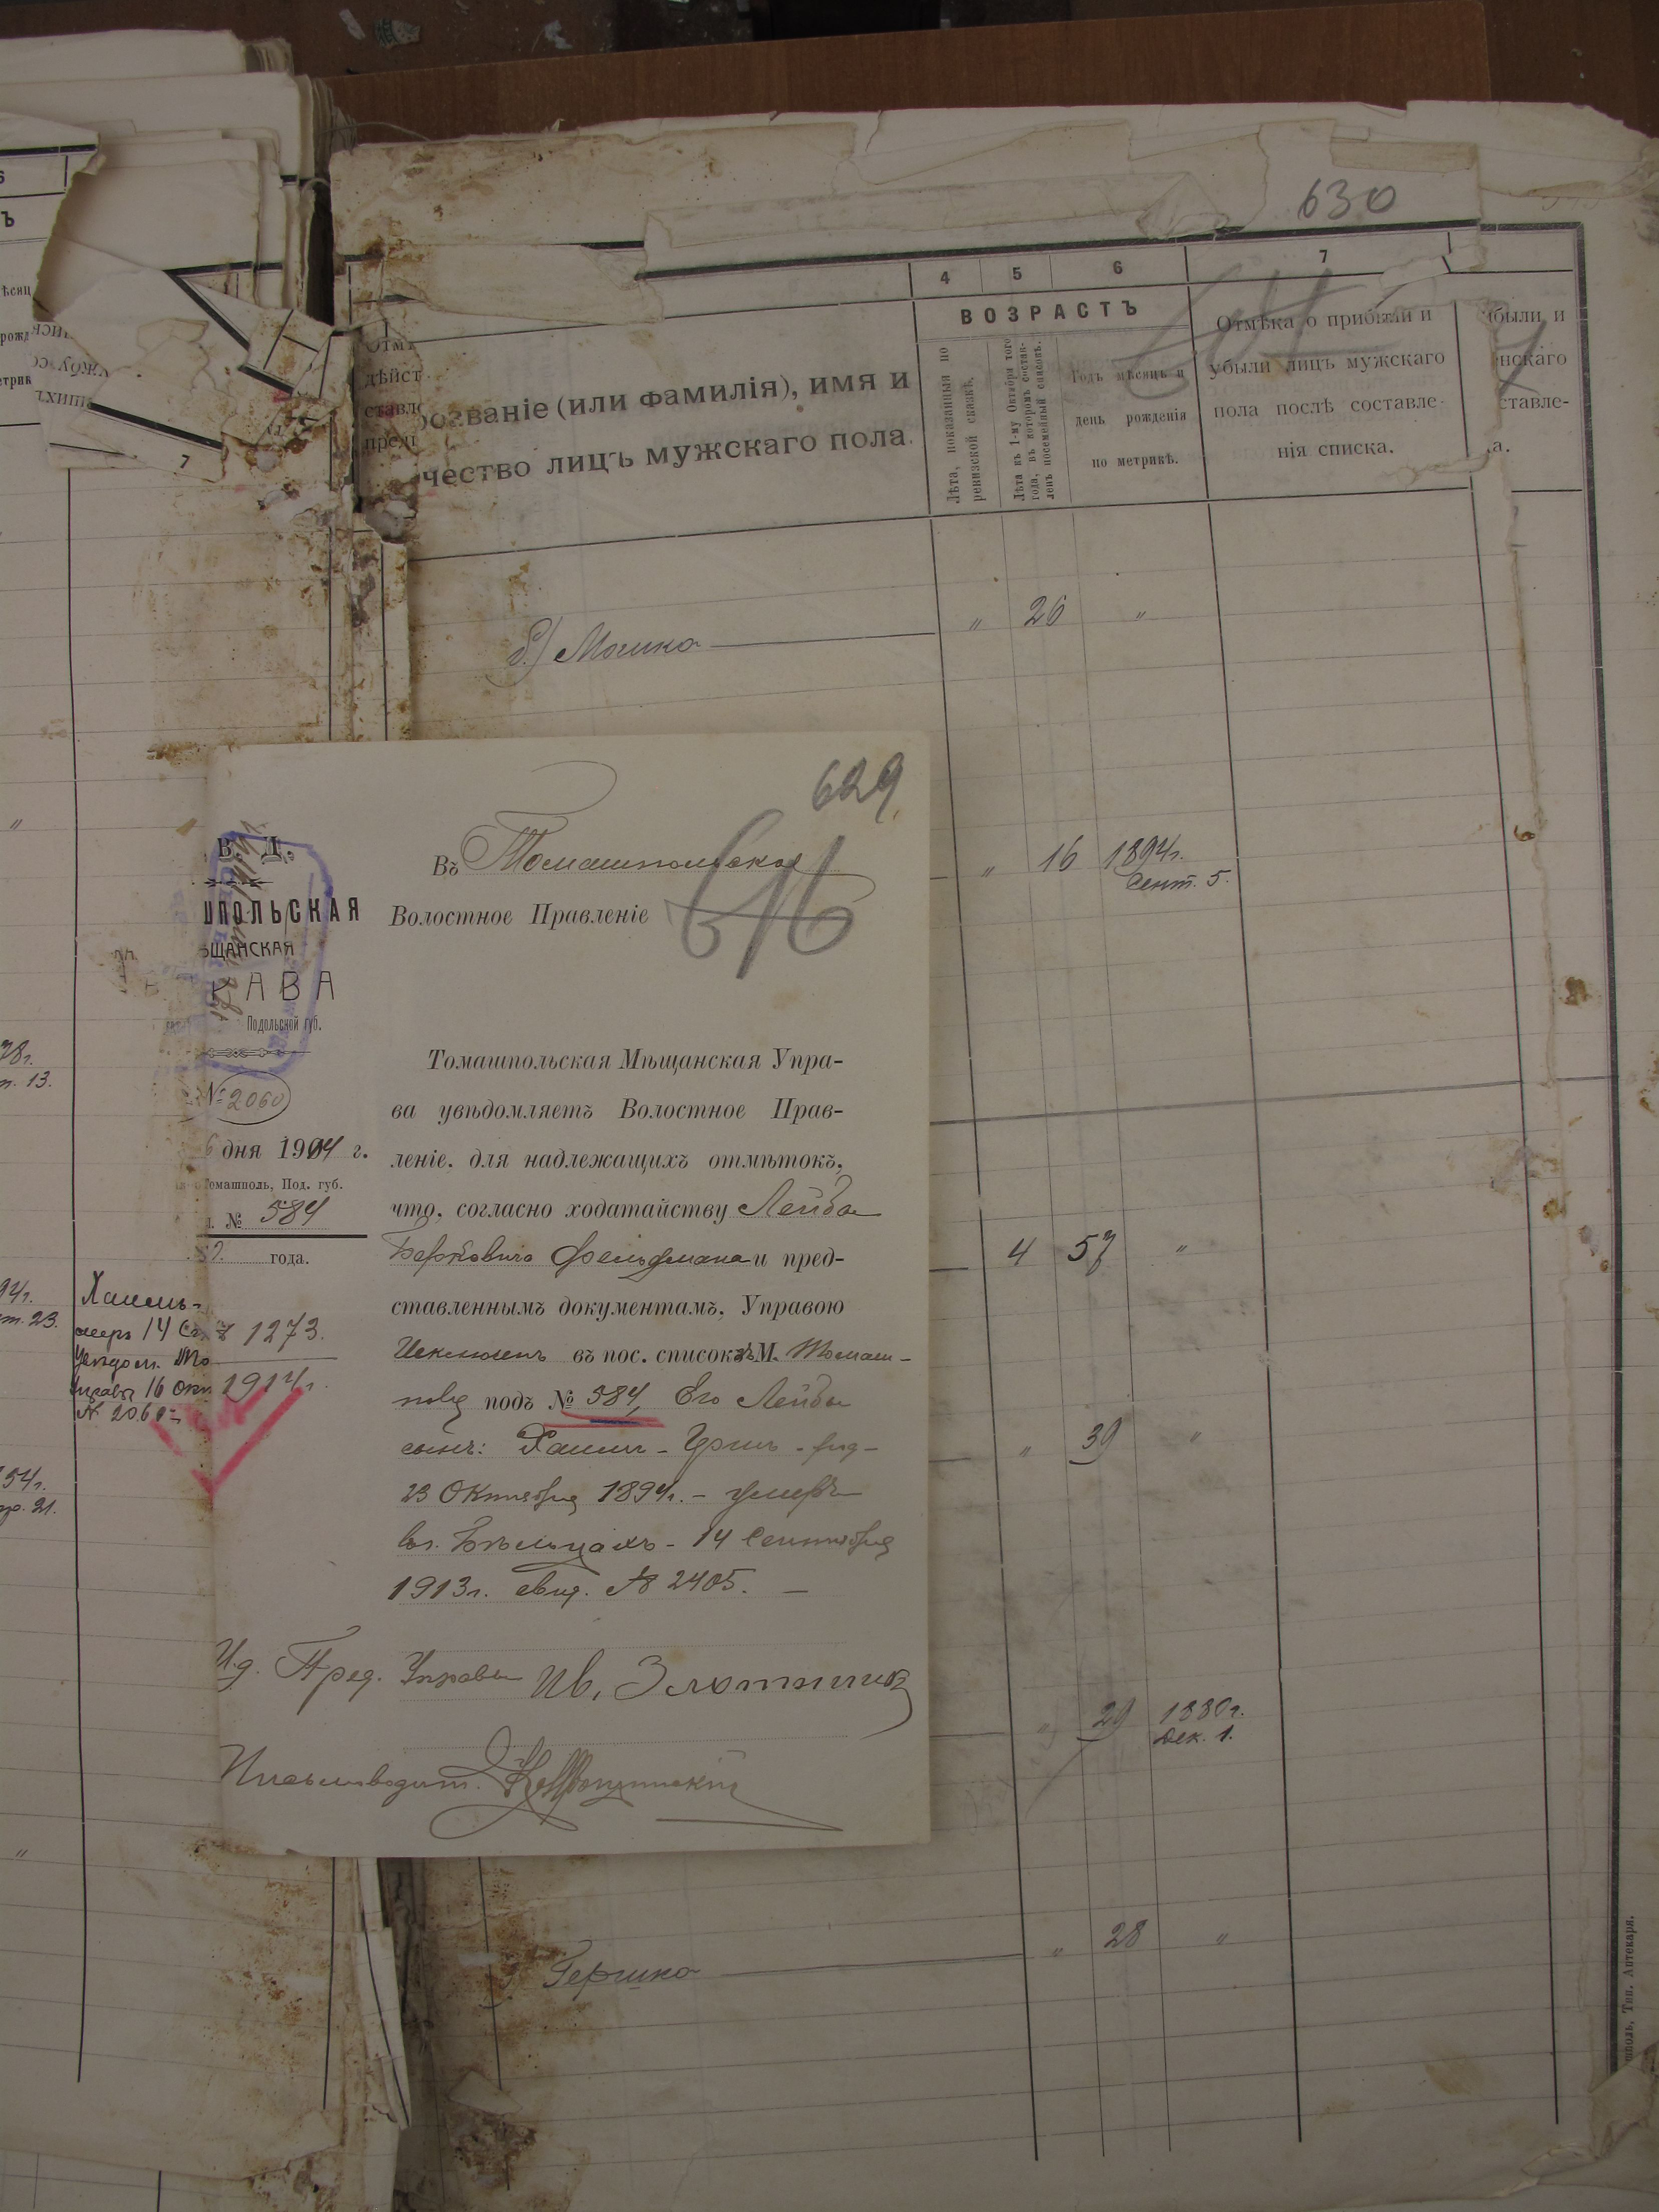 630
4 5 6 7
ВОЗРАСТЪ
розваніе (или фамилія), имя и
чество лицъ мужскаго пола.
Лѣта, показанныя по
ревизской сказкѣ.
Лѣта къ 1-му Октября того
года, въ которомъ состав-
ленъ посемейный списокъ.
Годъ мѣсяцъ и
день рожденія
по метрикѣ.
Отмѣтка о прибыли и
убыли лицъ мужскаго
пола послѣ составле-
нія списка.
были и
нскаго
ставле-
.а.
б) Мошко " 26 "
" 16 1894г.
Сент. 5.
4 57 "
" 39 "
" 29 1880г.
Дек. 1.
Гершко " 28 "
629
616
В. Д.
ПОЛЬСКАЯ
ЩАНСКАЯ
РАВА
Подольской губ.
№ 2060
6 дня 1914 г.
Томашполь, Под. губ.
№ 584
года.
1273.
1914г.
Въ Томашпольское
Волостное Правленіе
Томашпольская Мѣщанская Упра-
ва увѣдомляетъ Волостное Прав-
леніе, для надлежащихъ отмѣтокъ,
что, согласно ходатайству Лейбы
Берковича Фельдмана и пред-
ставленнымъ документамъ, Управою
Исключенъ въ пос. список М. Томаш-
поля подъ № 584, Его Лейбы
сынъ: Хаимъ-Гершъ - род-
23 Октября 1894г. - умеръ
въ г. Бѣльцахъ - 14 Сентября
1913г. свид. № 2405. -
И.д. Пред. Управы Ив. Злотницкій
Письмоводит.
78г.
13.
94г.
т. 23.
Хаимъ-
умеръ 14 Се
Увѣдом. То
Управы 16 Окт
№ 2060
54г.
21.
Тип. Аптекаря.